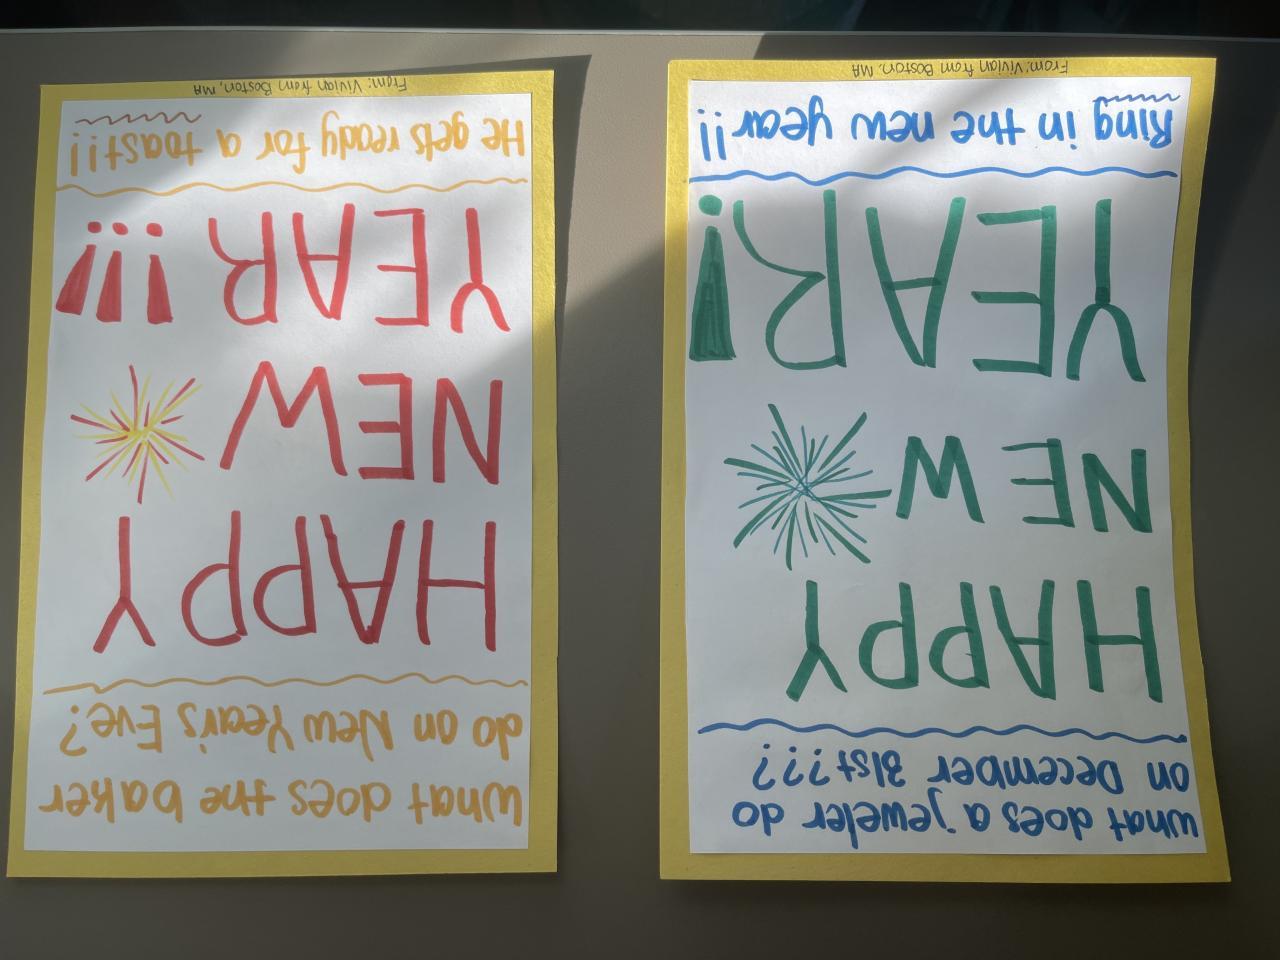 What does a jeweler do
on December 31st???
HAPPY
NEW
YEAR!
Ring in the new year!!
From: Vivian from Boston, MA
What does the baker
do on New Year's Eve?
HAPPY
NEW
YEAR!!!
He gets ready for a toast!!
From: Vivian from Boston, MA